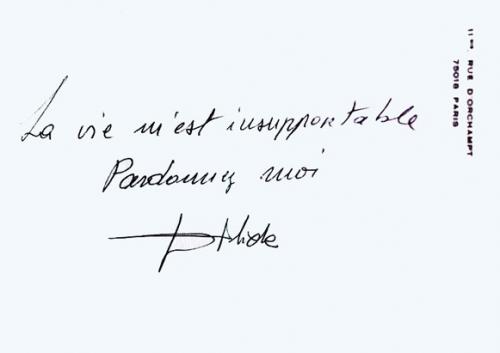 La vie m'est insupportable
Pardonnez moi
Dalida
11 bis, RUE D'ORCHAMPT
75018 PARIS